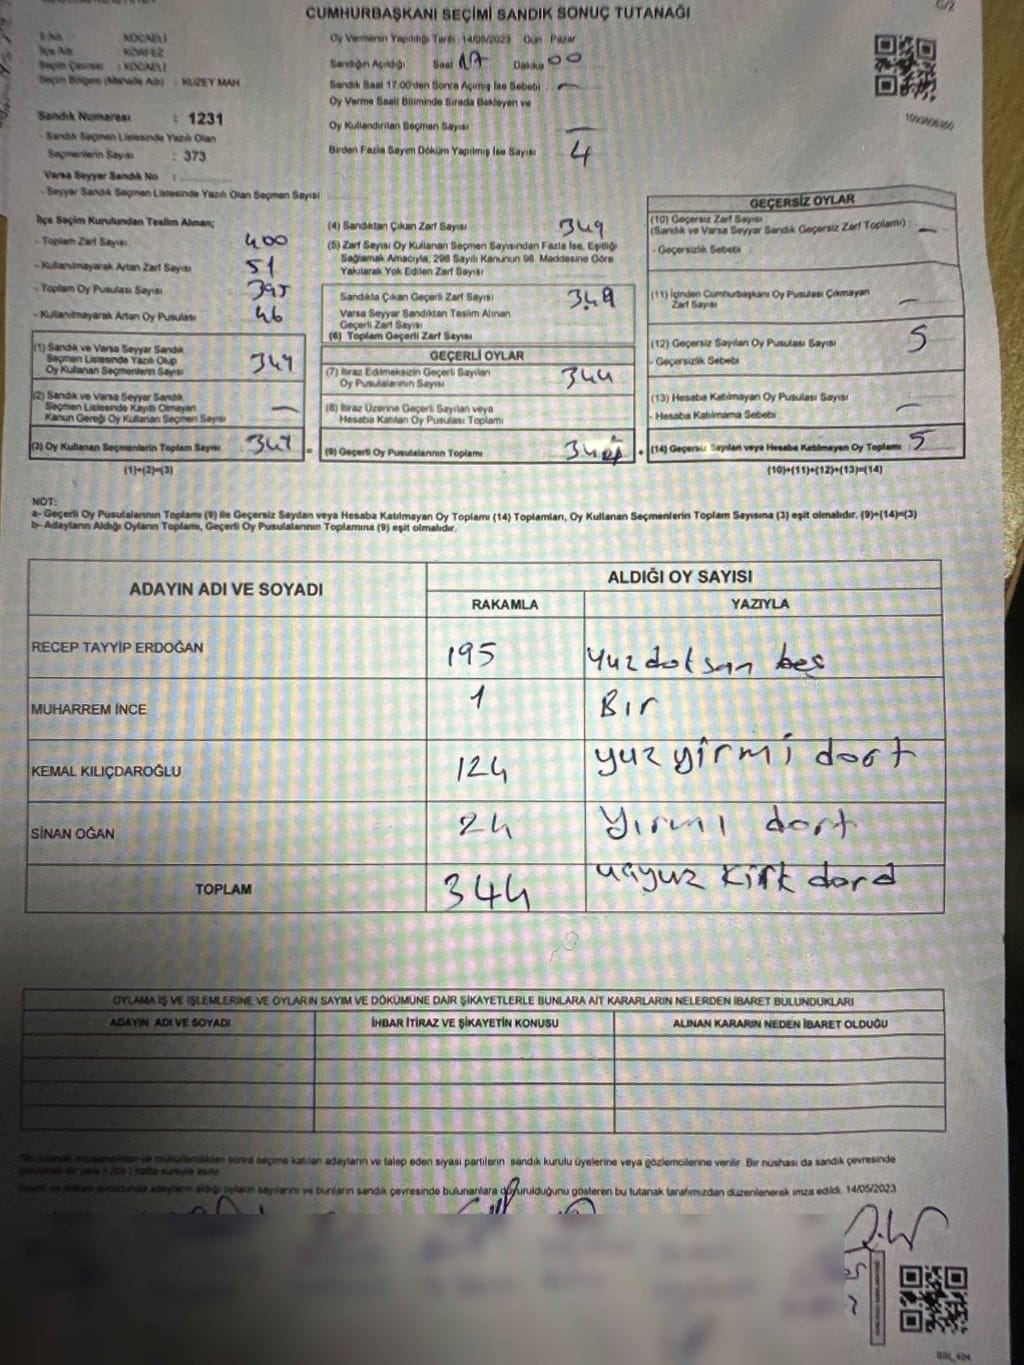 CUMHURBAŞKANI SEÇİMİ SANDIK SONUÇ TUTANAĞI
İl Adı : KOCAELİ
İlçe Adı : KÖRFEZ
Seçim Çevresi : KOCAELİ
Seçim Bölgesi (Mahalle Adı) : KUZEY MAH
Oy Vermenin Yapıldığı Tarih 14/05/2023 Gün Pazar
Sandığın Açıldığı Saat 17 Dakika 00
Sandık Saat 17:00'den Sonra Açılmış İse Sebebi : —
Oy Verme Saati Bitiminde Sırada Bekleyen ve
Oy Kullandırılan Seçmen Sayısı —
Birden Fazla Sayım Döküm Yapılmış İse Sayısı 4
Sandık Numarası : 1231
- Sandık Seçmen Listesinde Yazılı Olan
Seçmenlerin Sayısı : 373
Varsa Seyyar Sandık No :
- Seyyar Sandık Seçmen Listesinde Yazılı Olan Seçmen Sayısı
İlçe Seçim Kurulundan Teslim Alınan;
- Toplam Zarf Sayısı 400
- Kullanılmayarak Artan Zarf Sayısı 51
- Toplam Oy Pusulası Sayısı 395
- Kullanılmayarak Artan Oy Pusulası 46
(1) Sandık ve Varsa Seyyar Sandık
Seçmen Listesinde Yazılı Olup
Oy Kullanan Seçmenlerin Sayısı 349
(2) Sandık ve Varsa Seyyar Sandık
Seçmen Listesinde Kayıtlı Olmayan
Kanun Gereği Oy Kullanan Seçmen Sayısı —
(3) Oy Kullanan Seçmenlerin Toplam Sayısı 349 =
(1)+(2)=(3)
(4) Sandıktan Çıkan Zarf Sayısı 349
(5) Zarf Sayısı Oy Kullanan Seçmen Sayısından Fazla İse, Eşitliği
Sağlamak Amacıyla, 298 Sayılı Kanunun 98. Maddesine Göre
Yakılarak Yok Edilen Zarf Sayısı
Sandıkta Çıkan Geçerli Zarf Sayısı 349
Varsa Seyyar Sandıktan Teslim Alınan
Geçerli Zarf Sayısı
(6) Toplam Geçerli Zarf Sayısı
GEÇERLİ OYLAR
(7) İtiraz Edilmeksizin Geçerli Sayılan
Oy Pusulalarının Sayısı 344
(8) İtiraz Üzerine Geçerli Sayılan veya
Hesaba Katılan Oy Pusulası Toplamı
(9) Geçerli Oy Pusulalarının Toplamı +
GEÇERSİZ OYLAR
(10) Geçersiz Zarf Sayısı
(Sandık ve Varsa Seyyar Sandık Geçersiz Zarf Toplamı) : —
- Geçersizlik Sebebi
(11) İçinden Cumhurbaşkanı Oy Pusulası Çıkmayan
Zarf Sayısı —
(12) Geçersiz Sayılan Oy Pusulası Sayısı 5
- Geçersizlik Sebebi
(13) Hesaba Katılmayan Oy Pusulası Sayısı
- Hesaba Katılmama Sebebi —
(14) Geçersiz Sayılan veya Hesaba Katılmayan Oy Toplamı 5
(10)+(11)+(12)+(13)=(14)
NOT:
a- Geçerli Oy Pusulalarının Toplamı (9) ile Geçersiz Sayılan veya Hesaba Katılmayan Oy Toplamı (14) Toplamları, Oy Kullanan Seçmenlerin Toplam Sayısına (3) eşit olmalıdır. (9)+(14)=(3)
b- Adayların Aldığı Oyların Toplamı, Geçerli Oy Pusulalarının Toplamına (9) eşit olmalıdır.
ADAYIN ADI VE SOYADI
ALDIĞI OY SAYISI
RAKAMLA YAZIYLA
RECEP TAYYİP ERDOĞAN 195 yuzdoksan beş
MUHARREM İNCE 1 Bır
KEMAL KILIÇDAROĞLU 124 yuz yirmi dort
SİNAN OĞAN 24 Yırmı dort
TOPLAM 344 uçyuz kirk dord
OYLAMA İŞ VE İŞLEMLERİNE VE OYLARIN SAYIM VE DÖKÜMÜNE DAİR ŞİKAYETLERLE BUNLARA AİT KARARLARIN NELERDEN İBARET BULUNDUKLARI
ADAYIN ADI VE SOYADI İHBAR İTİRAZ VE ŞİKAYETİN KONUSU ALINAN KARARIN NEDEN İBARET OLDUĞU
sonra seçime katılan adayların ve talep eden siyasi partilerin sandık kurulu üyelerine veya gözlemcilerine verilir. Bir nüshası da sandık çevresinde
adayların aldığı oyların sayılarını ve bunların sandık çevresinde bulunanlara duyurulduğunu gösteren bu tutanak tarafımızdan düzenlenerek imza edildi. 14/05/2023